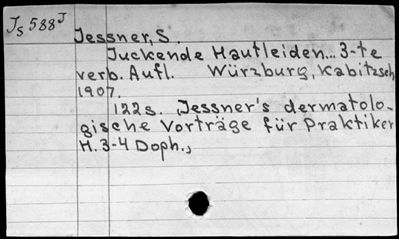 Js 588J
Jessner, S.
Juckende Hautleiden... 3-te
verb. Aufl. Würzburg, Kabitzsch
1907.
122s. „Jessner's dermatolo-
gische Vorträge für Praktiker
H. 3-4 Doph.„